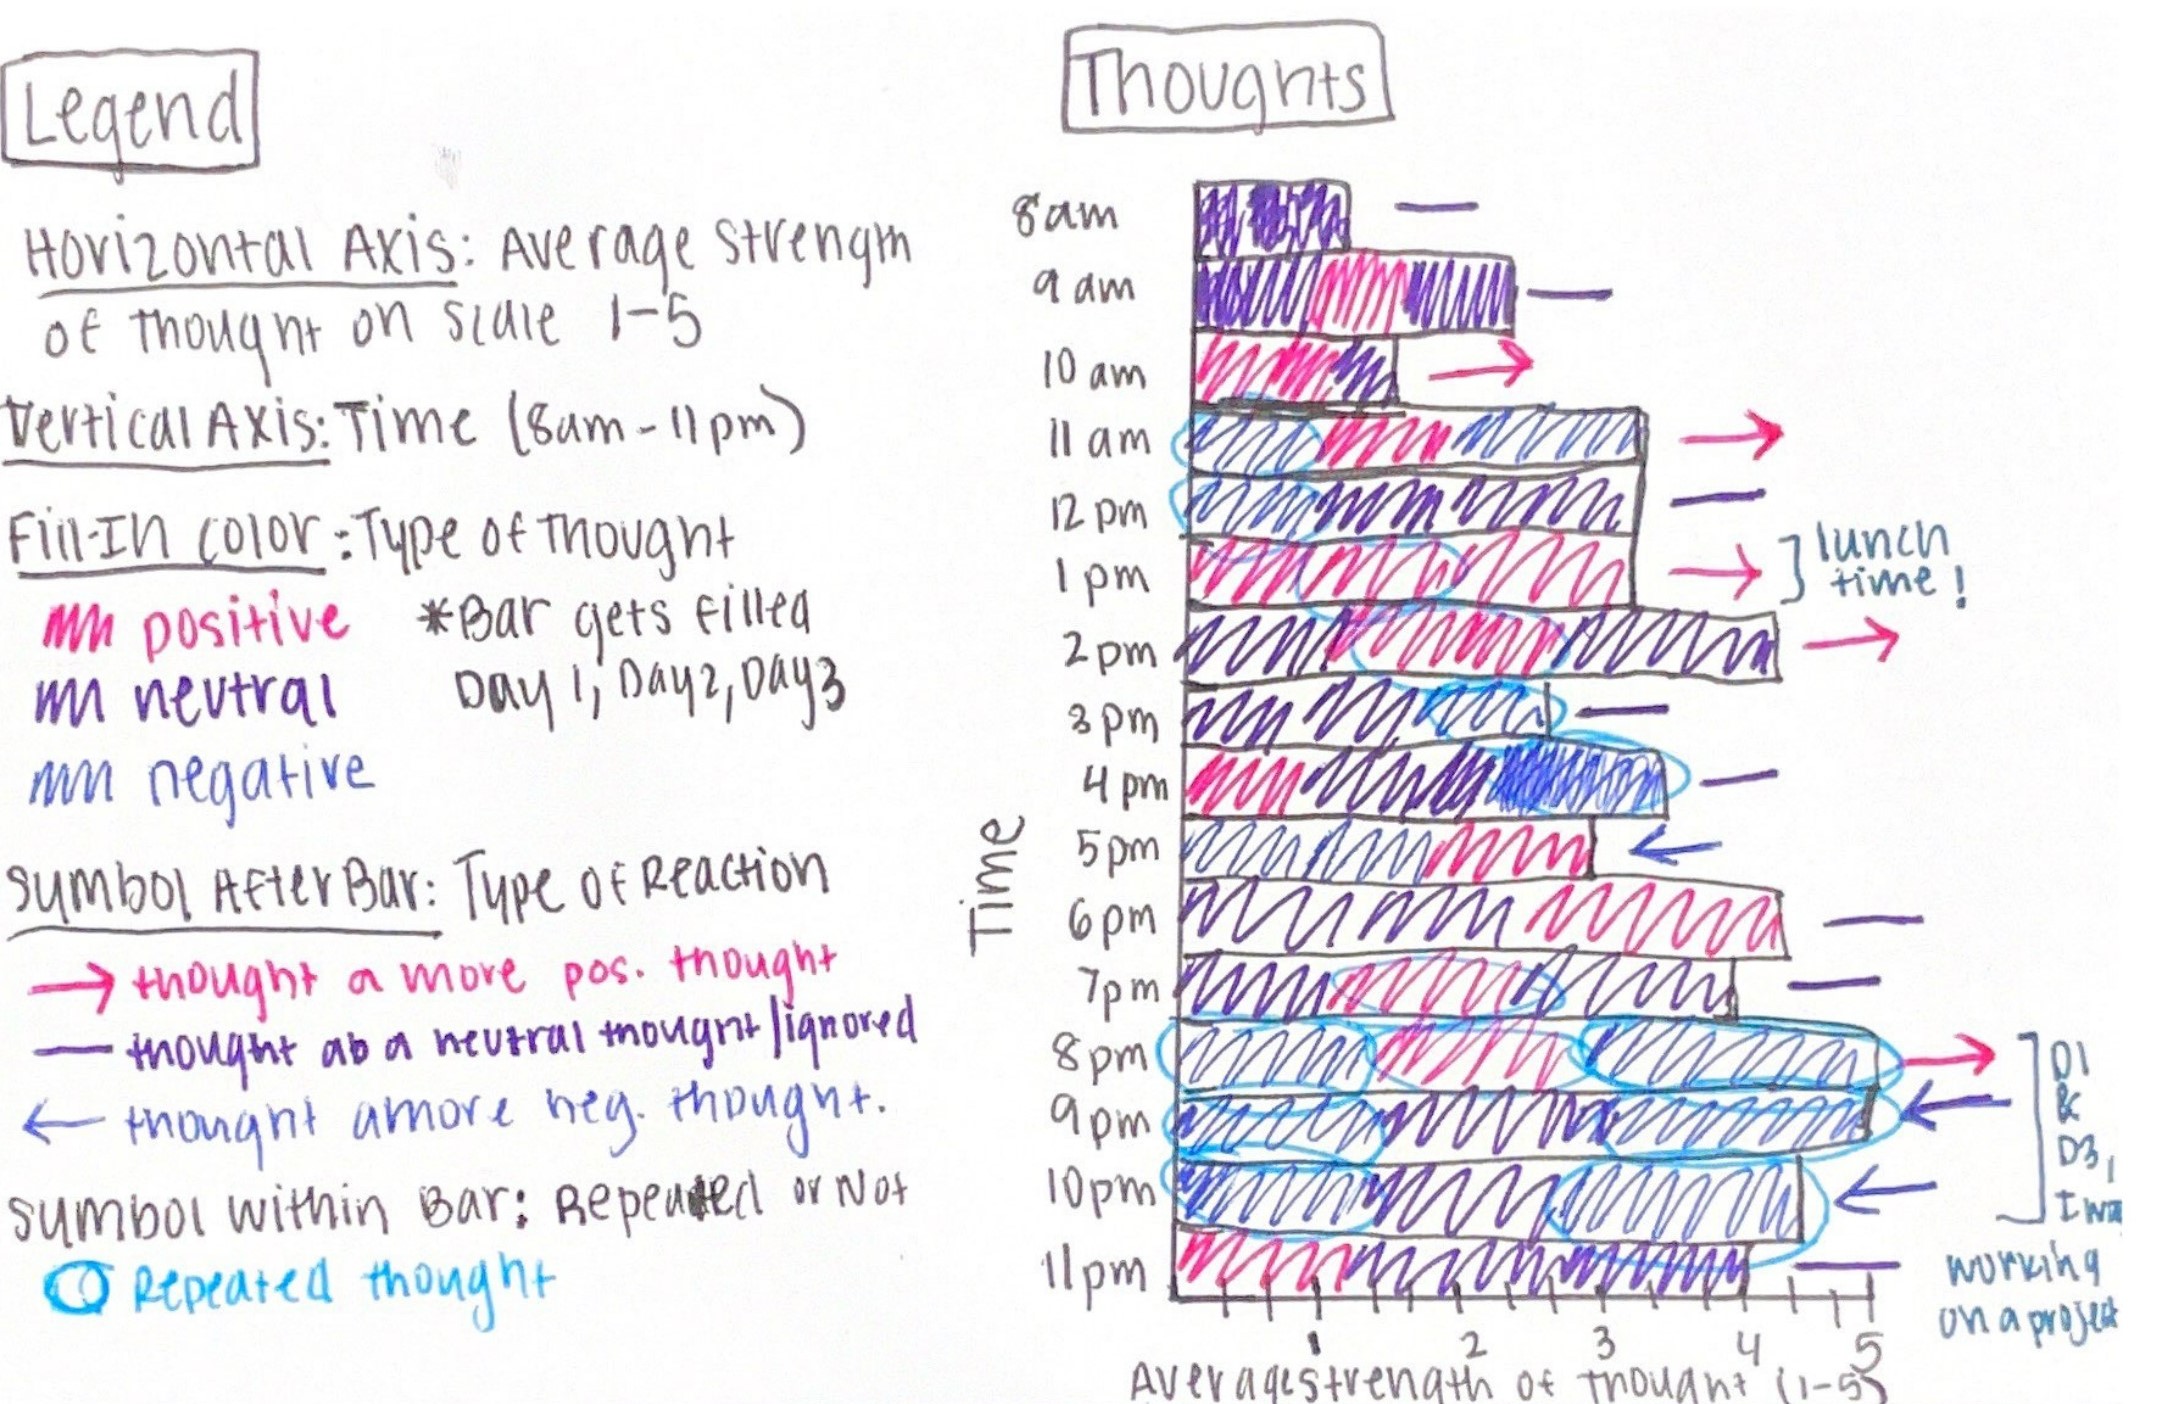 Legend
Horizontal Axis: Average strength
of thought on scale 1-5
Vertical Axis: Time (8am-11pm)
Fill-In color: Type of thought
positive
neutral
negative
*Bar gets filled
Day 1, Day2, Day3
Symbol After Bar: Type of Reaction
thought a more pos. thought
thought ab a neutral thought/ignored
thought a more neg. thought.
Symbol within Bar: Repeated or Not
Repeated thought
Thoughts
8am
9am
10am
11am
12pm
1pm
2pm
3pm
4pm
5pm
6pm
7pm
8pm
9pm
10pm
11pm
Time
lunch
time!
D1
&
D3,
I wa
working
on a project
1 2 3 4 5
Average strength of thought (1-5)